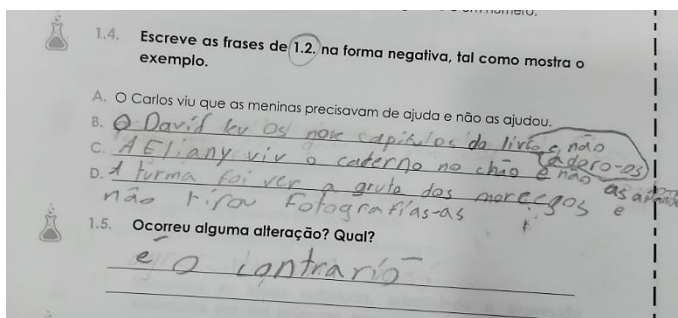 1.4. Escreve as frases de 1.2. na forma negativa, tal como mostra o
exemplo.
A. O Carlos viu que as meninas precisavam de ajuda e não as ajudou.
B. O David leu os nove capítulos do livro e não
adoro-os
C. A Eliany viu o caderno no chão e não as
D. A turma foi ver a gruta dos morcegos e
não tirou fotografías-as
1.5. Ocorreu alguma alteração? Qual?
é o contrario